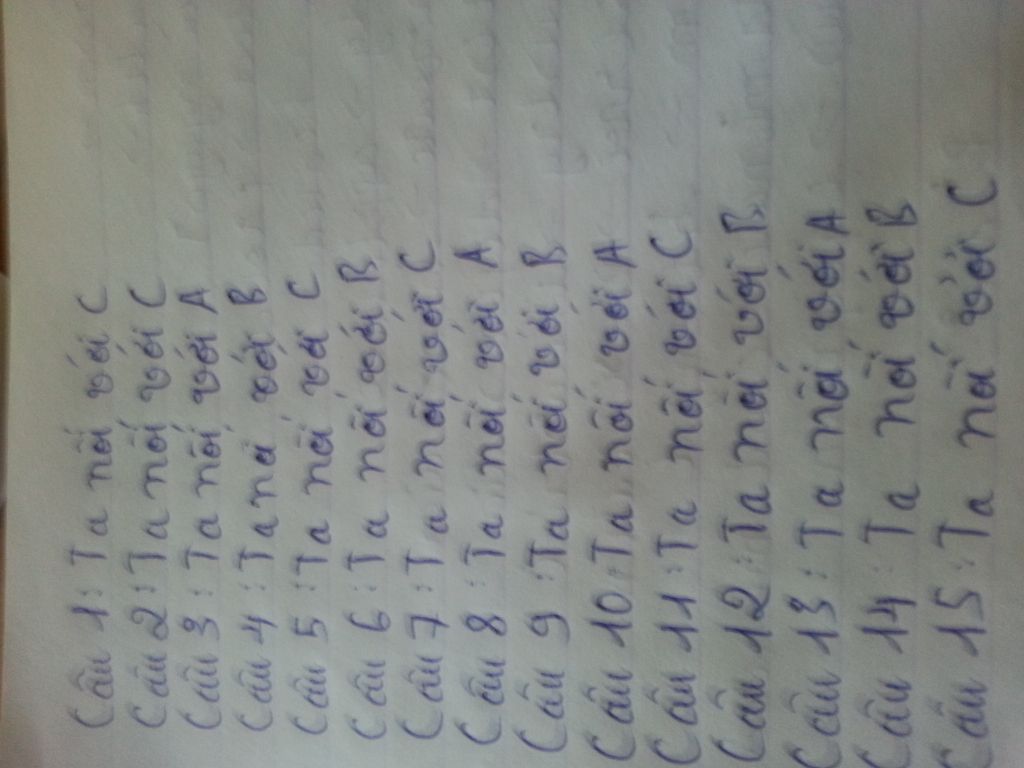 Câu 1: Ta nối với C
Câu 2: Ta nối với C
Câu 3: Ta nối với A
Câu 4: Ta nối với B
Câu 5: Ta nối với C
Câu 6: Ta nối với B
Câu 7: Ta nối với C
Câu 8: Ta nối với A
Câu 9: Ta nối với B
Câu 10: Ta nối với A
Câu 11: Ta nối với C
Câu 12: Ta nối với B
Câu 13: Ta nối với A
Câu 14: Ta nối với B
Câu 15: Ta nối với C